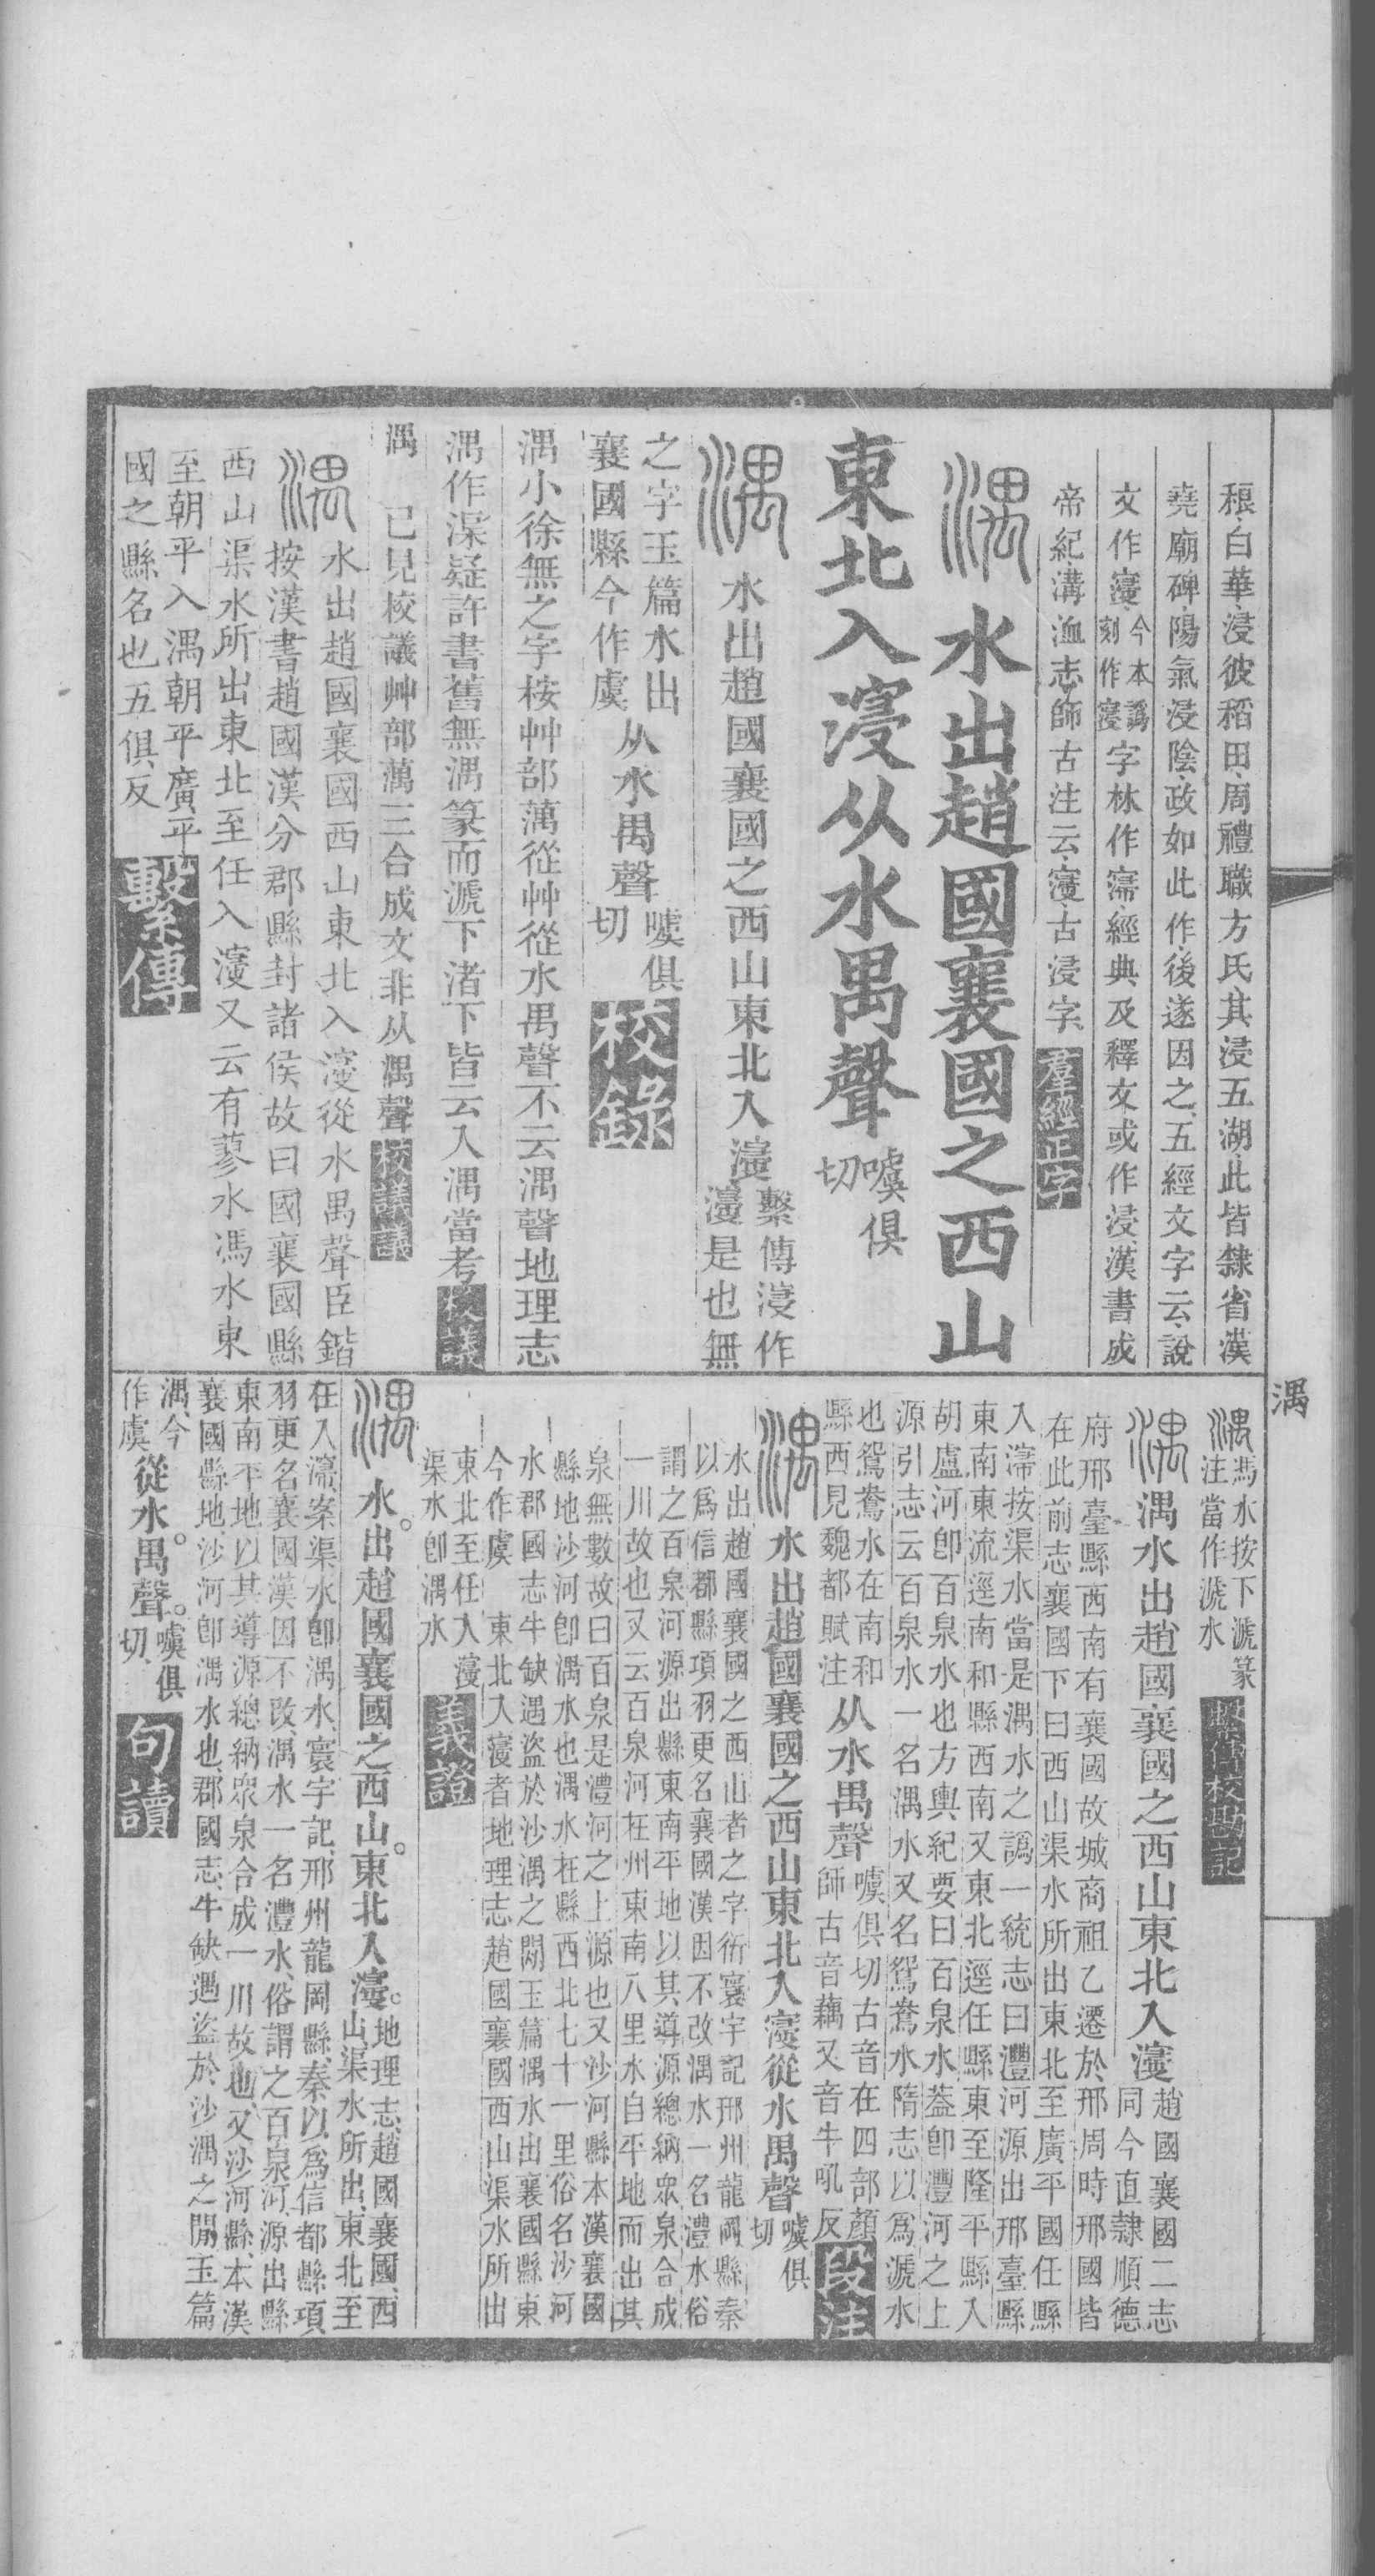 稂、白華、浸彼稻田、周禮職方氏、其浸五湖、此皆隸省漢
堯廟碑、陽氣浸陰、政如此作、後遂因之、五經文字云、說
文作寖、今本譌刻作寖字林作㵕、經典及釋文或作浸、漢書成
帝紀、溝洫志、師古注云、寖、古浸字、羣經正字
湡 水出趙國襄國之西山
東北入寖从水禺聲噳俱切
湡 水出趙國襄國之西山東北入寖繫傳寖作濅是也無
之字玉篇水出襄國縣今作虞从水禺聲噳俱切 校錄
湡小徐無之字桉艸部藕從艸從水禺聲不云湡聲地理志
湡作渠疑許書舊無湡篆而㴲下渚下皆云入湡當考校議
湡 已見校議艸部藕三合成文非从湡聲校議議
湡 水出趙國襄國西山東北入濅從水禺聲臣鍇
按漢書趙國漢分郡縣封諸侯故曰國襄國縣
西山渠水所出東北至任入濅又云有蓼水馮水東
至朝平入湡朝平廣平
國之縣名也五俱反 繫傳
湡
湡馮水按下㴲篆
注當作㴲水 段繫傳校勘記
湡 湡水出趙國襄國之西山東北入濅趙國襄國二志
同今直隸順德
府邢臺縣西南有襄國故城商祖乙遷於邢周時邢國皆
在此前志襄國下曰西山渠水所出東北至廣平國任縣
入㵕按渠水當是湡水之譌一統志曰灃河源出邢臺縣
東南東流逕南和縣西南又東北逕任縣東至隆平縣入
胡盧河卽百泉水也方輿紀要曰百泉水葢卽灃河之上
源引志云百泉水一名湡水又名鴛鴦水隋志以爲㴲水
也鴛鴦水在南和
縣西見魏都賦注从水禺聲噳俱切古音在四部顏
師古音藕又音牛吼反段注
湡 水出趙國襄國之西山東北入寖從水禺聲噳俱切
水出趙國襄國之西山者之字衍寰宇記邢州龍岡縣秦
以爲信都縣項羽更名襄國漢因不改湡水一名澧水俗
謂之百泉河源出縣東南平地以其導源總納眾泉合成
一川故也又云百泉河在州東南八里水自平地而出其
泉無數故曰百泉是澧河之上源也又沙河縣本漢襄國
縣地沙河卽湡水也湡水在縣西北七十一里俗名沙河
水郡國志牛缺遇盜於沙湡之閒玉篇湡水出襄國縣東
今作虞 東北入寖者地理志趙國襄國西山渠水所出
東北至任入寖
渠水卽湡水 義證
湡 水出趙國襄國之西山。東北入濅。地理志、趙國襄國、西
山、渠水所出、東北至
任入㵕、案渠水卽湡水、寰宇記、邢州龍岡縣、秦以爲信都縣、項
羽更名襄國、漢因不改、湡水一名澧水、俗謂之百泉河、源出縣
東南平地、以其導源總納眾泉合成一川故也、又沙河縣、本漢
襄國縣地、沙河卽湡水也、郡國志、牛缺遇盜於沙湡之閒、玉篇
湡、今作虞從水。禺聲。噳俱切、 句讀